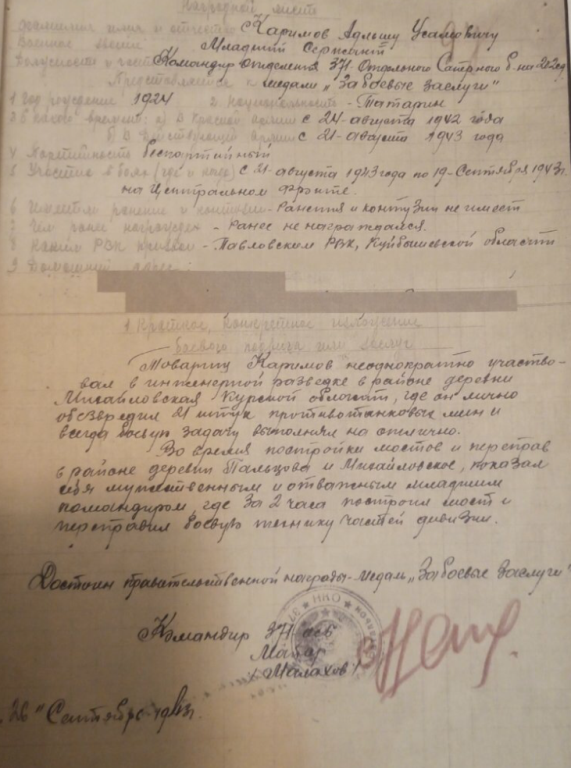 Наградной лист
Фамилия имя и отчество Каримов Адльшу Усамович
Военное звание Младший Сержант
Должность и часть Командир Отделения 371 Отдельного Саперного б-на
Представляется к медали „За боевые заслуги"
1 Год рождения 1924 2. Национальность - Татарин
в Красной Армии с 24-августа 1942 года
б) В действующей армии с 21-августа 1943 года
4 Партийность беспартийный
5 Участие в боях (где и когда) с 21-августа 1943 года по 19-Сентября 1943г.
на Центральном фронте.
6 Имеет ли ранения и контузии - Ранения и контузии не имеет
7 Чем ранее награжден - Ранее не награждался.
8 Каким РВК призван - Павловским РВК, Куйбышевской области
9 Домашний адрес:
1 Краткое, конкретное изложение
боевого подвига или заслуг
Товарищ Каримов неоднократно участво-
вал в инженерной разведке в районе деревни
Михайловская Курской области, где он лично
обезвредил 21 штук противотанковых мин и
всегда боевую задачу выполнял на отлично.
Во время постройки мостов и переправ
в районе деревни Пальцова и Михайловское, показал
себя мужественным и отважным младшим
командиром, где за 2 часа построил мост и
переправил боевую технику частей дивизии.
Достоин правительственной награды-медаль „За боевые заслуги"
Командир 371 осб
Майор
Малахов
НКО
„26" Сентября 1943г.